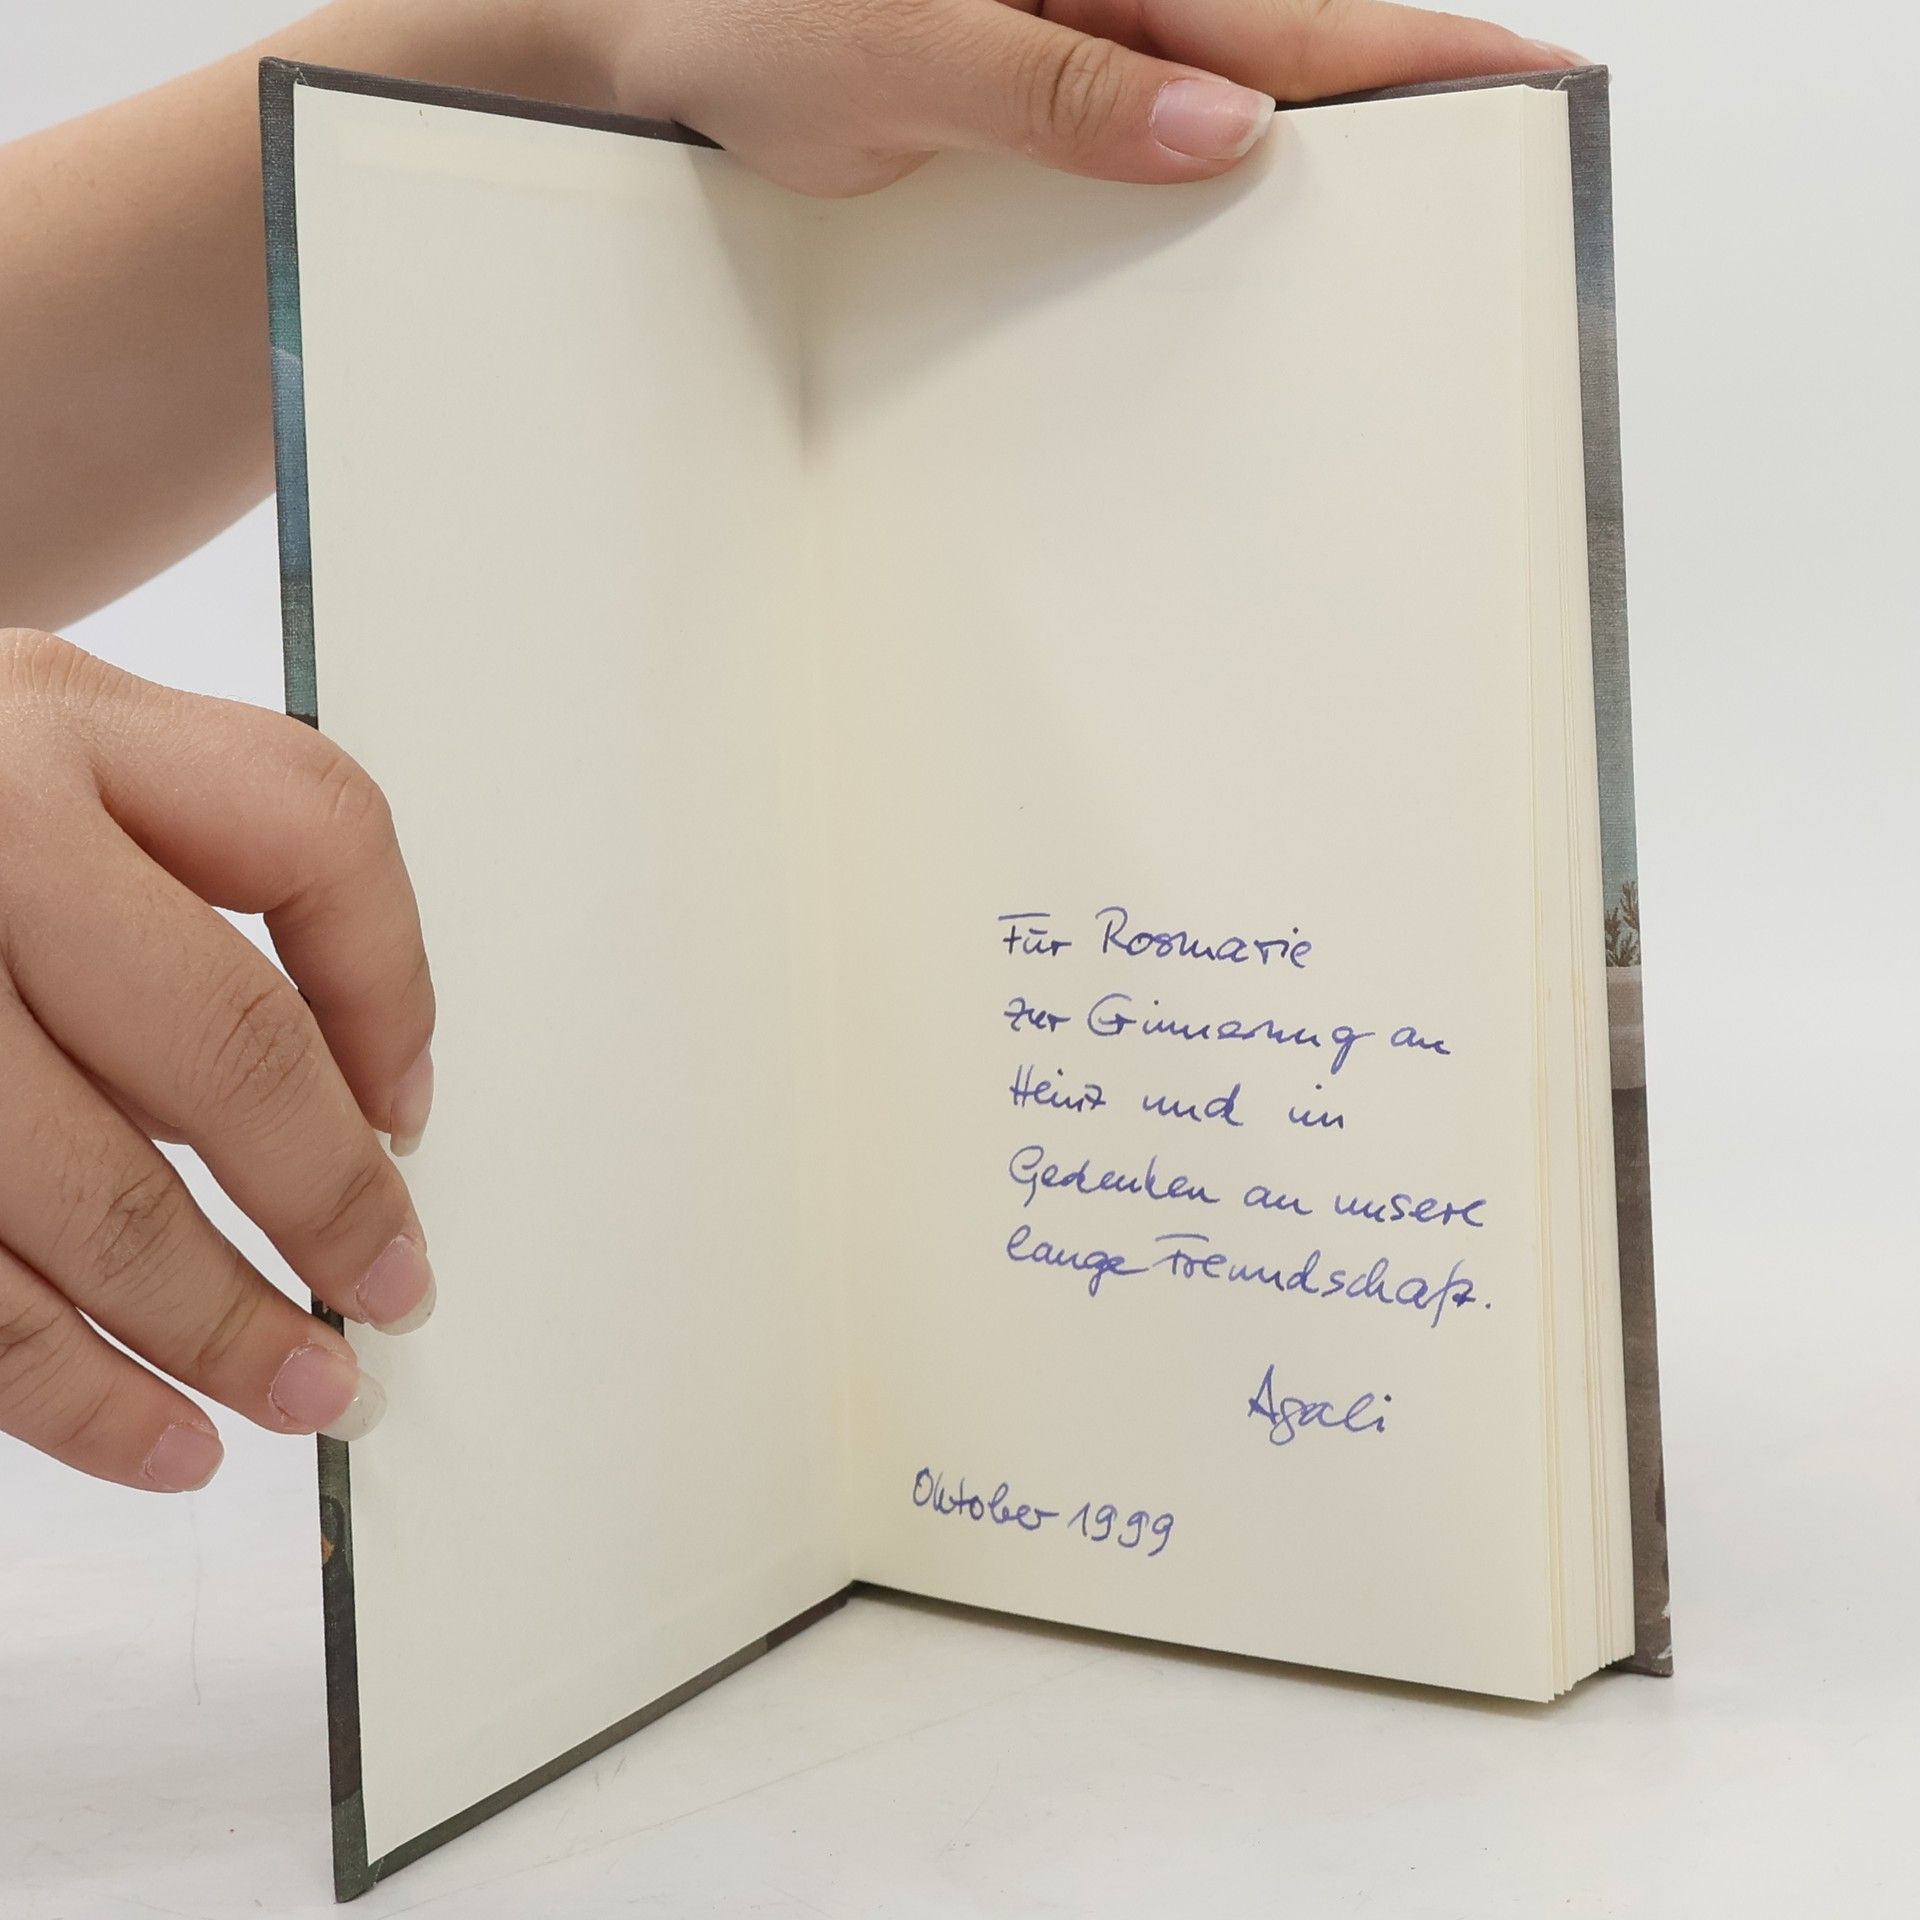 Für Rosmarie
zur Erinnerung an
Heinz und im
Gedenken an unsere
lange Freundschaft.
Agali
Oktober 1999